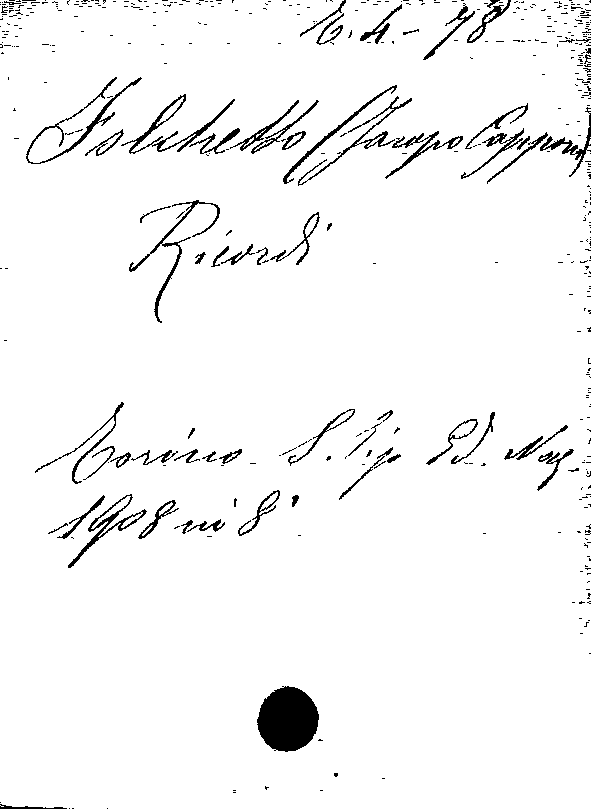 E. 4. - 78
Folchetto (Jacopo Caponi)
Ricordi
Torino S. Tip. Ed. Naz.
1908 in 8°